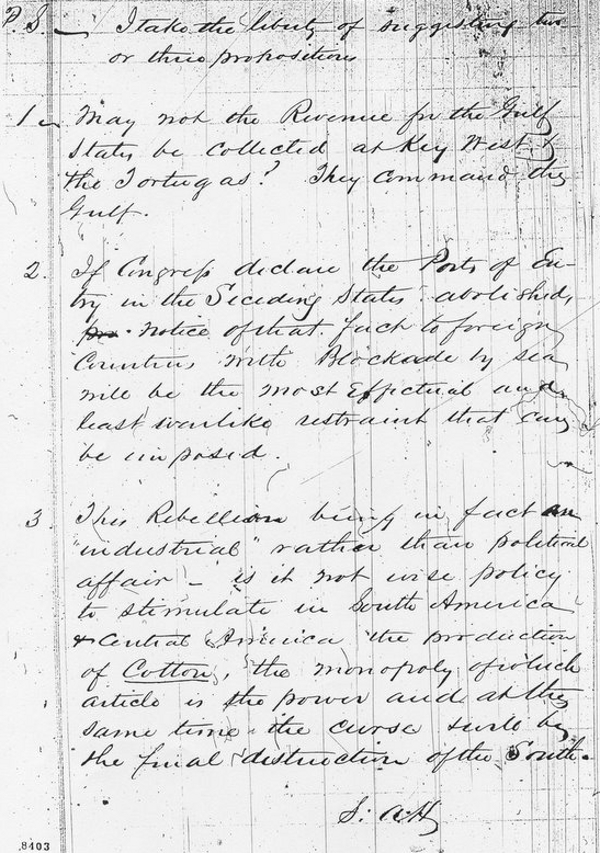 P.S. — I take the liberty of suggesting two
or three propositions
1 — May not the Revenue for the Gulf
States be collected at Key West &
the Tortugas? They command the
Gulf.
2. If Congress declare the Ports of En-
try in the Seceding States abolished,
notice of that fact to foreign
Countries, with Blockade by sea
will be the most Effectual and
least warlike restraint that can
be imposed.
3 This Rebellion being in fact an
"industrial" rather than political
affair — is it not wise policy
to stimulate in South America
& Central America the production
of Cotton, the monopoly of which
article is the power and at the
same time the curse & will be
the final destruction of the South.
S. A. H
8403